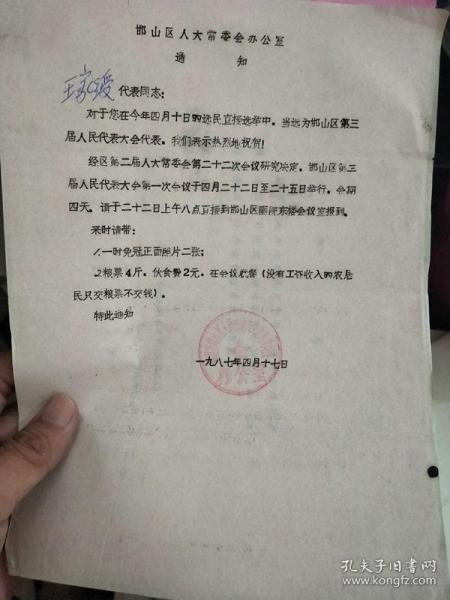 邯山区人大常委会办公室
通 知
代表同志:
对于您在今年四月十日的选民直接选举中,当选为邯山区第三
届人民代表大会代表,我们表示热烈地祝贺!
经区第二届人大常委会第二十二次会议研究决定,邯山区第三
届人民代表大会第一次会议于四月二十二日至二十五日举行,会期
四天。请于二十二日上午八点直接到邯山区 东楼会议室报到。
来时请带:
1.一吋免冠正面照片二张;
2粮票4斤,伙食费2元,在会议就餐(没有工资收入的农居
民只交粮票不交钱)。
特此通知
一九八七年四月十七日
孔夫子旧书网
www.kongfz.com